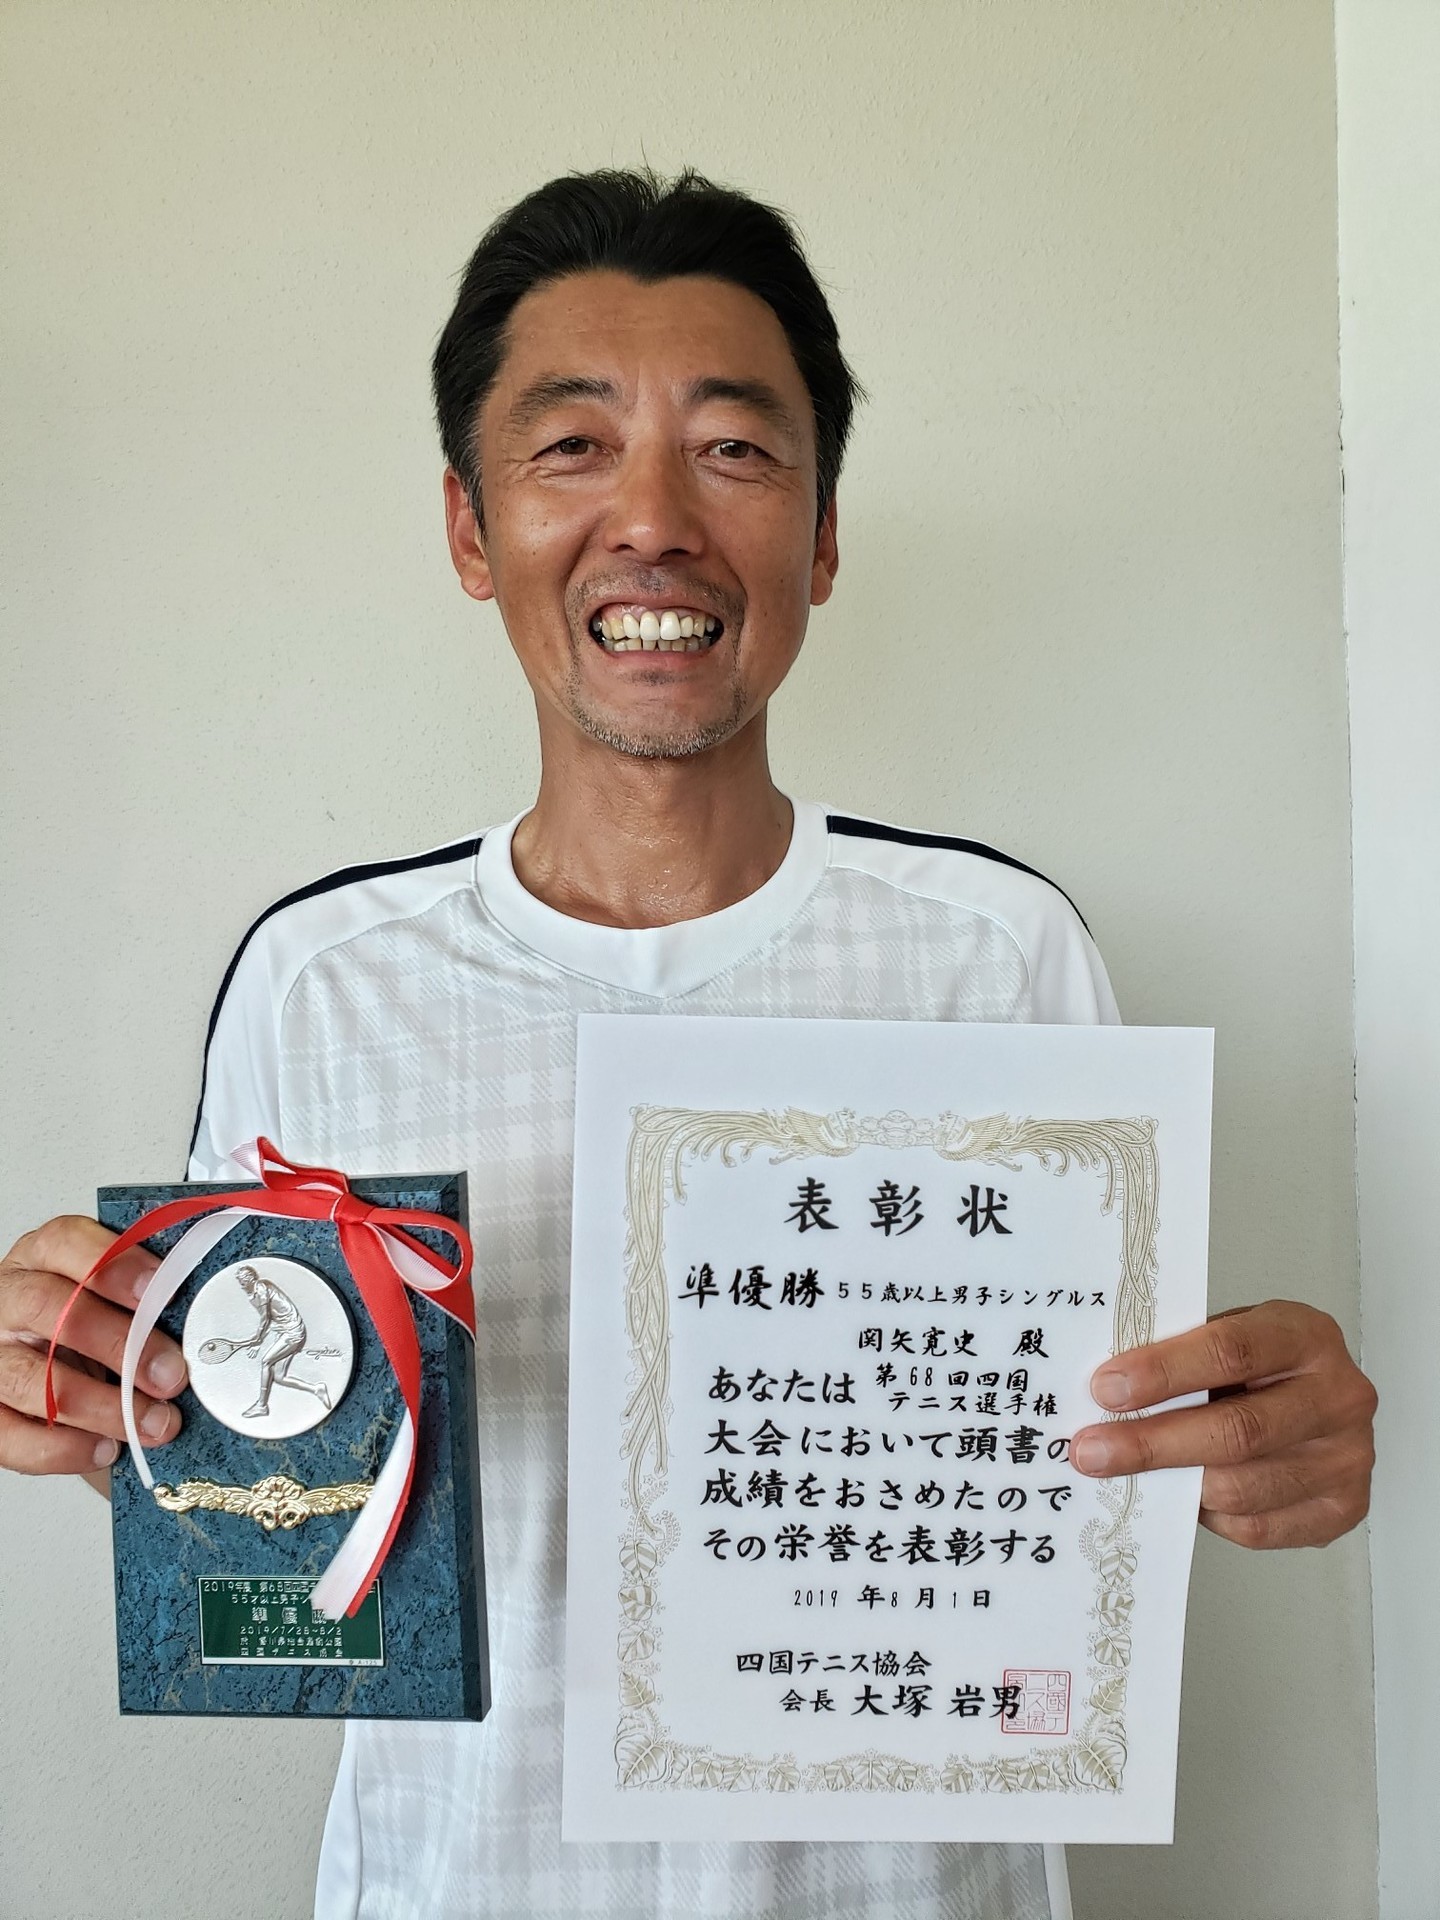 表彰状
準優勝 55歳以上男子シングルス
関矢寛史 殿
あなたは 第68回四国
テニス選手権
大会において頭書の
成績をおさめたので
その栄誉を表彰する
2019年8月1日
四国テニス協会
会長 大塚 岩男
2019年度 第68回
55才以上男子シ
準優勝
2019/7/28~8/2
四国テニス協会